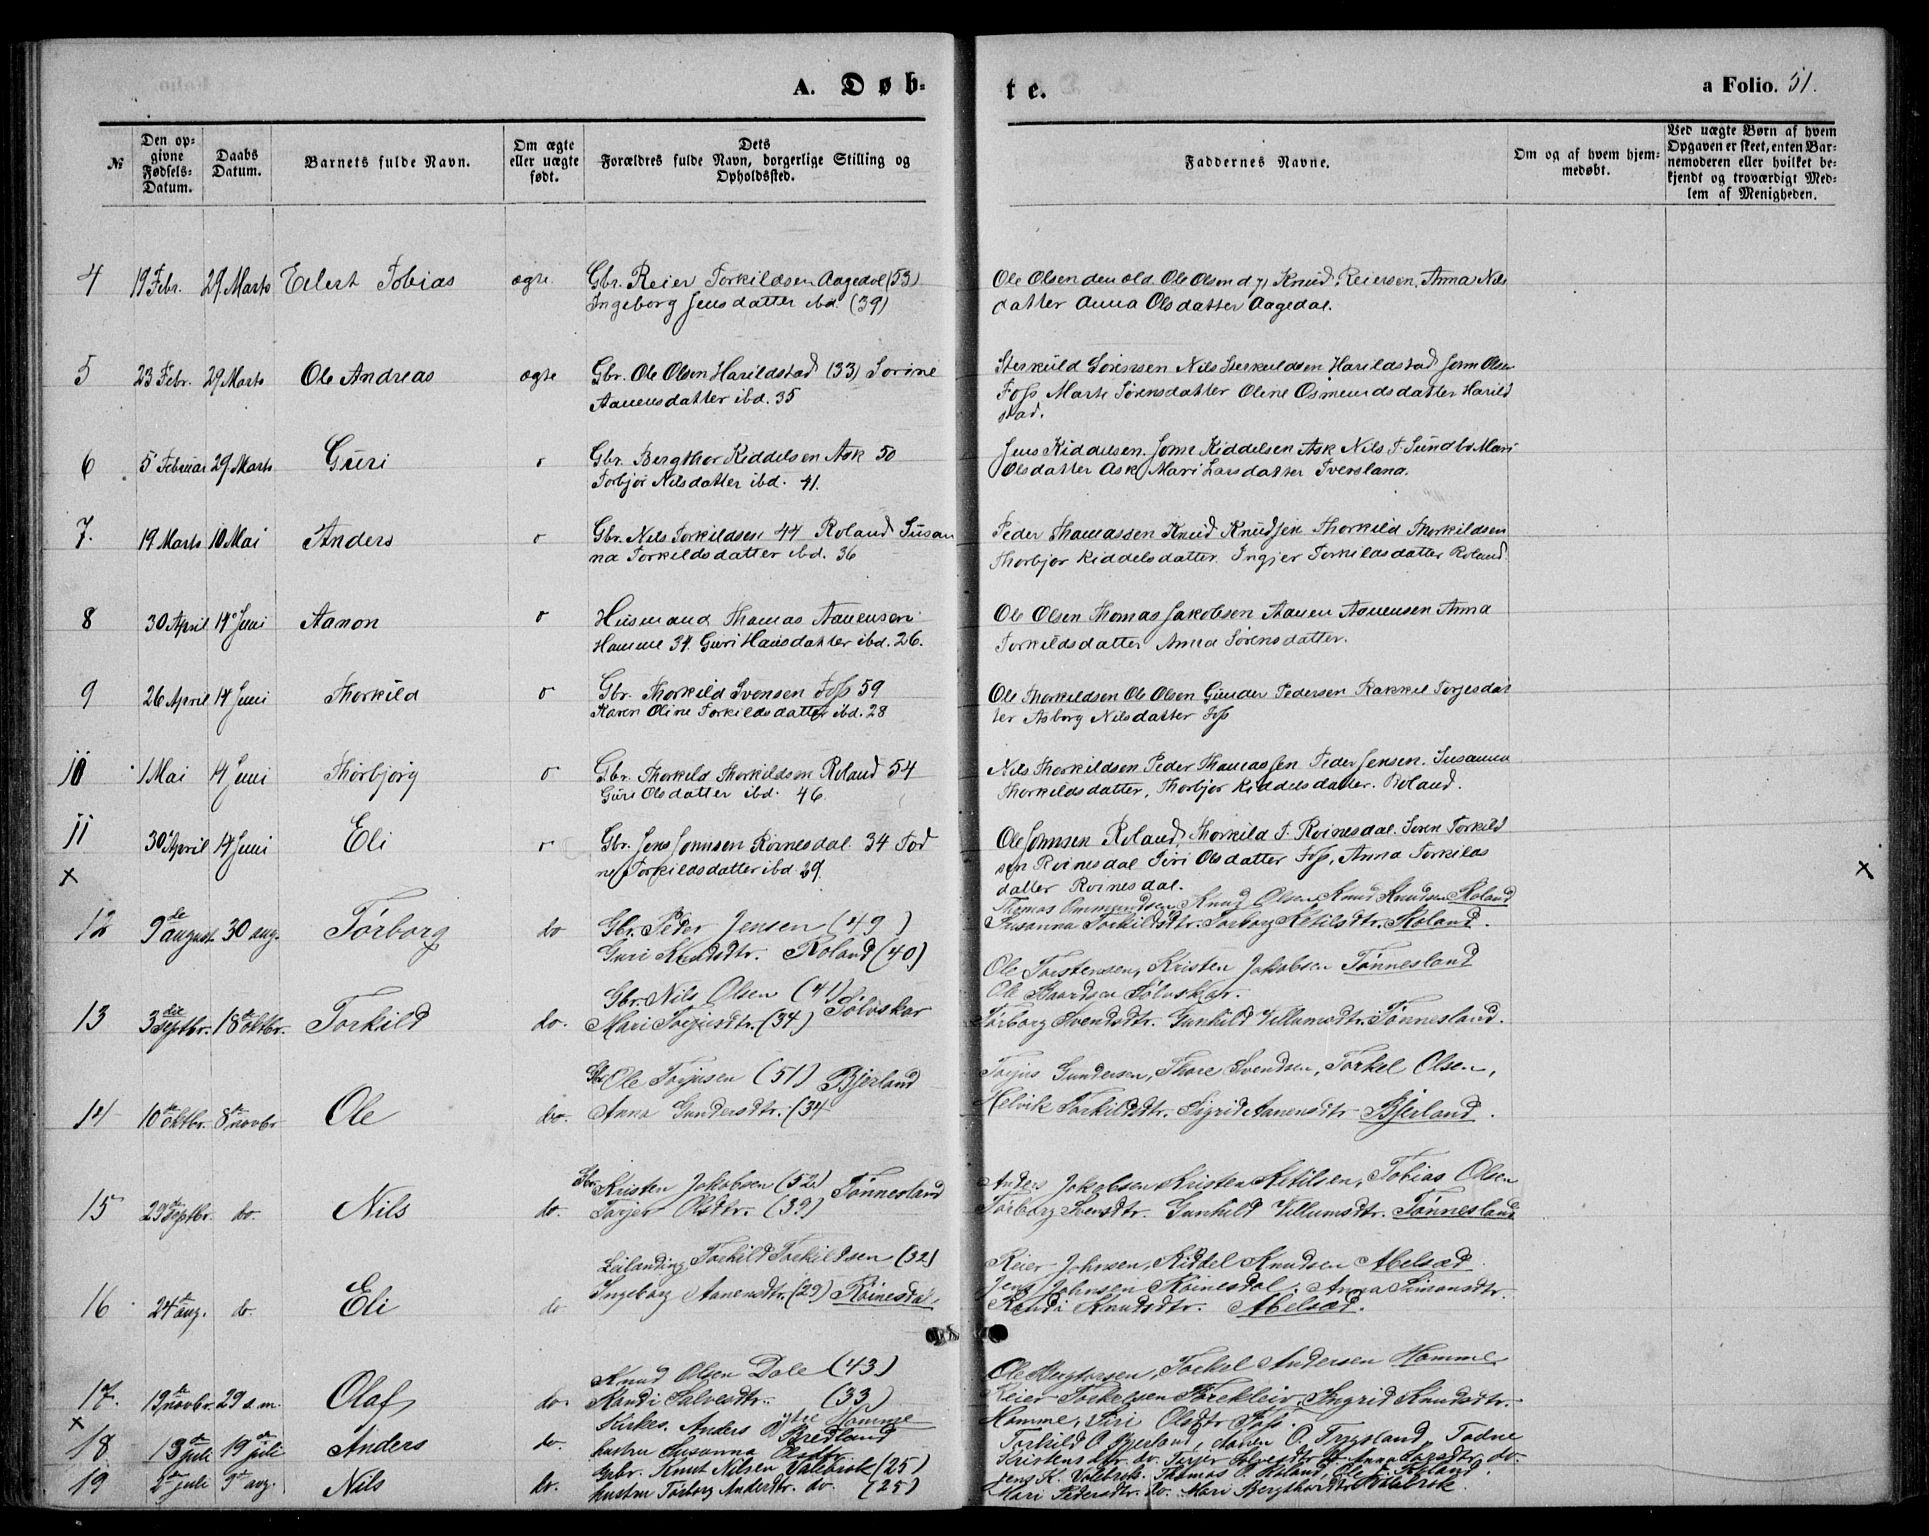 A. Døb-
te.
a Folio. 51.
№
Den op-
givne
Fødsels-
Datum.
Daabs
Datum.
Barnets fulde Navn.
Om ægte
eller uægte
født.
Dets
Forældres fulde Navn, borgerlige Stilling og
Opholdssted.
Faddernes Navne.
Om og af hvem hjem-
medøbt.
Ved uægte Børn af hvem
Opgaven er skeet, enten Bar-
nemoderen eller hvilket be-
kjendt og troværdigt Med-
lem af Menigheden.
4 19 Febr. 29. Marts Eilert Tobias ægte Gbr. Reier Torkildsen Aagedal (53)
Ingeborg Jensdatter ibd. (39)
Ole Olsen den old. Ole Olsen d. y) Knud Reiersen, Anna Nils
datter Anna Olsdatter Aagedal.
5 23 Febr. 29 Marts Ole Andreas ægte Gbr. Ole Olsen Harildstad (33) Sorine
Aanensdatter ibd. 35
Sterkuld Sørensen Nils Sterkuldsen Harildstad Jorn Olsen
Foss Marte Sørensdatter Oline Osmundsdatter Harild
stad.
6 5 Februar 29. Marts Guri Gbr. Bergthor Kiddelsen Ask 50
Torbjør Nilsdatter ibd. 41.
Jens Kiddelsen. Jorn Kiddelsen Ask Nils T. Sundbø Mari
Olsdatter Ask Mari Larsdatter Iversland.
7. 19 Marts 10 Mai Anders Gbr. Nils Torkildsen 44 Roland Susan
na Torkildsdatter ibd. 36
Peder Thomassen Knud Knudsen Thorkild Thorkildsen
Thorbjør Kiddelsdatter. Ingjer Torkildsdatter Roland.
8 30 April 14 Juni Aanon Husmand Thomas Aanensen
Homme 34. Guri Hansdatter ibd. 26.
Ole Olsen Thomas Jakobsen Aanen Aanensen Anna
Torkildsdatter Anna Sørensdatter.
9 26 April 14 Juni Thorkild Gbr. Thorkild Svensen Foss 59
Karen Oline Torkildsdatter ibd. 28
Ole Thorkildsen Ole Olsen Gunder Pedersen Rakkel Torjesdat
ter Asborg Nilsdatter Foss
10 1 Mai 14 Juni Thorbjørg Gbr. Thorkild Thorkildsen Roland 54
Guri Olsdatter ibd. 46.
Nils Thorkildsen Peder Thomassen Peder Jensen. Susanna
Thorkildsdatter, Thorbjør Kiddelsdatter. Roland.
11 30 April 14 Juni Eli Gbr. Jens Jonnsen Roinesdal 34 Tod
ne Torkildsdatter ibd. 29.
Ole Jonnsen Roland, Thorkild T. Roinesdal. Soren Torkild
sen Roinesdal Siri Olsdatter Foss, Anna Torkilds
datter Roinesdal.
x
x
12 9de august 30 aug. Tørborg do Gbr. Peder Jensen (49)
Guri Knudsdtr. Roland (40)
Thomas Ommundsen, Knud Olsen, Knud Knudsen Roland
Susanna Torkildsdtr. Torborg Ketilsdtr. Roland.
13 3die septbr. 18de oktbr. Torkild do. Gbr. Nils Olsen (41)
Mari Torjusdtr. (34) Sølvskar
Ole Torstensen, Kristen Jakobsen Tønnesland
Ole Baardsen Sølvskar.
Tørborg Svendsdtr. Gunhild Villumsdtr. Tønnesland.
14 10de oktbr. 8de novbr Ole do. Gbr Ole Torjusen (51) Bjerland
Anna Gundersdtr. (34
Torjus Gundersen, Thore Svendsen, Torkel Olsen,
Helvik Torkildsdtr. Sigrid Aanensdtr. Bjerland.
15 29de septbr. do. Nils do. Gbr Kristen Jakobsen (52) Tønnesland
Torjer Olsdtr. (39)
Anders Jakobsen Kristen Ketilsen, Tobias Olsen
Tørborg Svensdtr. Gunhild Villumsdtr. Tønnesland
16 24de aug. do. Eli do Leilænding Torkild Torkildsen (32)
Ingeborg Aanensdtr. (29) Røinesdal,
Reier Johnsen, Kiddel Knudsen Abelsæd.
Jens Johnsen Røinesdal. Anna Simonsdtr.
Randi Knudsdtr. Abelsæd.
17. 19de novbr. 29 s. m. Olaf do. Knud Olsen Dale (43)
Randi Salvesdtr. (33)
ytre Homme
Ole Bergtorsen, Torkel Andersen Homme
Reier Torkelsen Forekleiv, Ingrid Knudsdtr.
Homme, Siri Olsdtr Foss.
x
18 13de juli 19de juli Anders do. Anders O. Bredland
hustru Susanna Olsdtr
Torkild O. Bjerland, Aanen O. Trygsland, Todne
Kristensdtr. do. Torjer Salvesdtr Anna Larsdtr. do.
19 2de juli 9de aug. Nils do. Gbr. Knut Nilsen Valebrok (25)
hustru Tørborg Andersdtr. do. (25)
Jens K. Valebrok. Thomas O. Roland, Ole Roland.
Mari Pedersdtr. do. Mari Bergthorsdtr Valebrok.